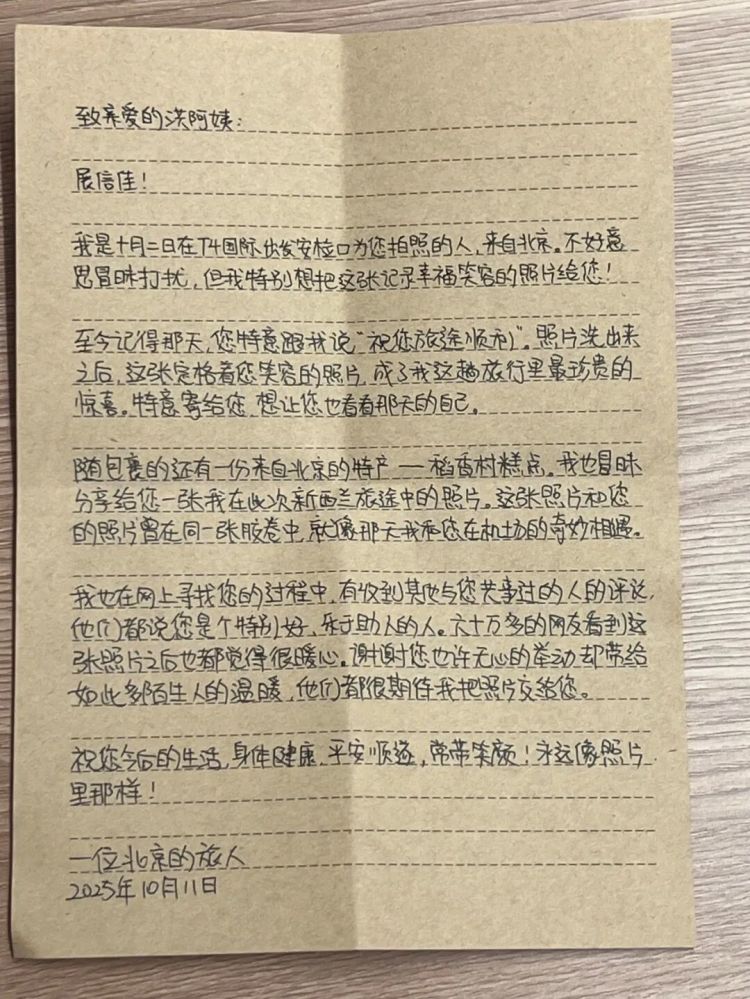 致亲爱的洪阿姨：
展信佳！
我是十月二日在T4国际出发安检口为您拍照的人，来自北京。不好意
思冒昧打扰，但我特别想把这张记录幸福笑容的照片给您！
至今记得那天，您特意跟我说“祝您旅途顺利”。照片洗出来
之后，这张定格着您笑容的照片，成了我这趟旅行里最珍贵的
惊喜。特意寄给您，想让您也看看那天的自己。
随包裹的还有一份来自北京的特产——稻香村糕点。我也冒昧
分享给您一张我在此次新西兰旅途中的照片。这张照片和您
的照片曾在同一张胶卷中，就像那天我和您在机场的奇妙相遇。
我也在网上寻找您的过程中，有收到其他与您共事过的人的评说，
他们都说您是个特别好，乐于助人的人。六十万多的网友看到这
张照片之后也都觉得很暖心。谢谢您也许无心的举动却带给
如此多陌生人的温暖，他们都很期待我把照片交给您。
祝您今后的生活，身体健康，平安顺遂，常带笑颜！永远像照片
里那样！
一位北京的旅人
2025年10月11日